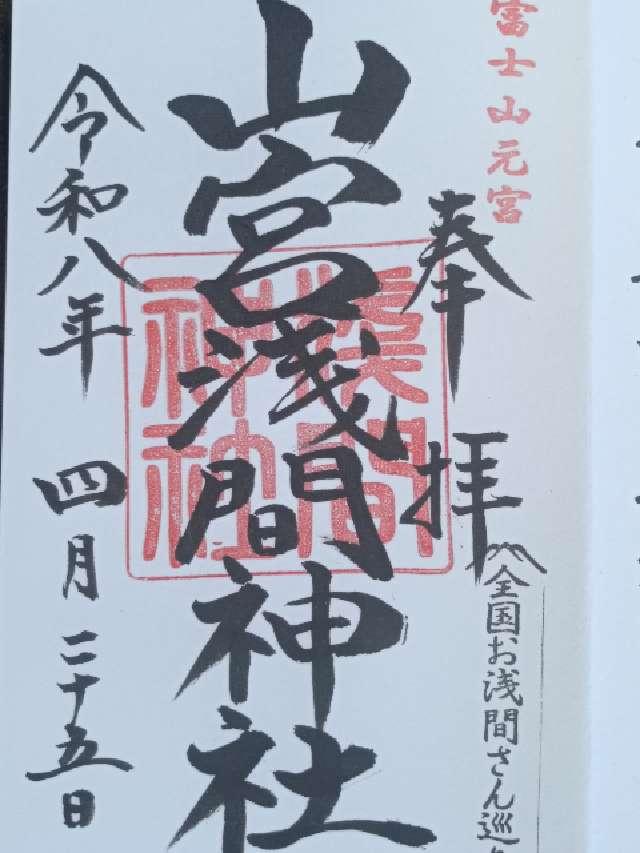 富士山元宮
奉拝
全国お浅間さん巡
山宮浅間神社
浅間神社
令和八年 四月二十五日